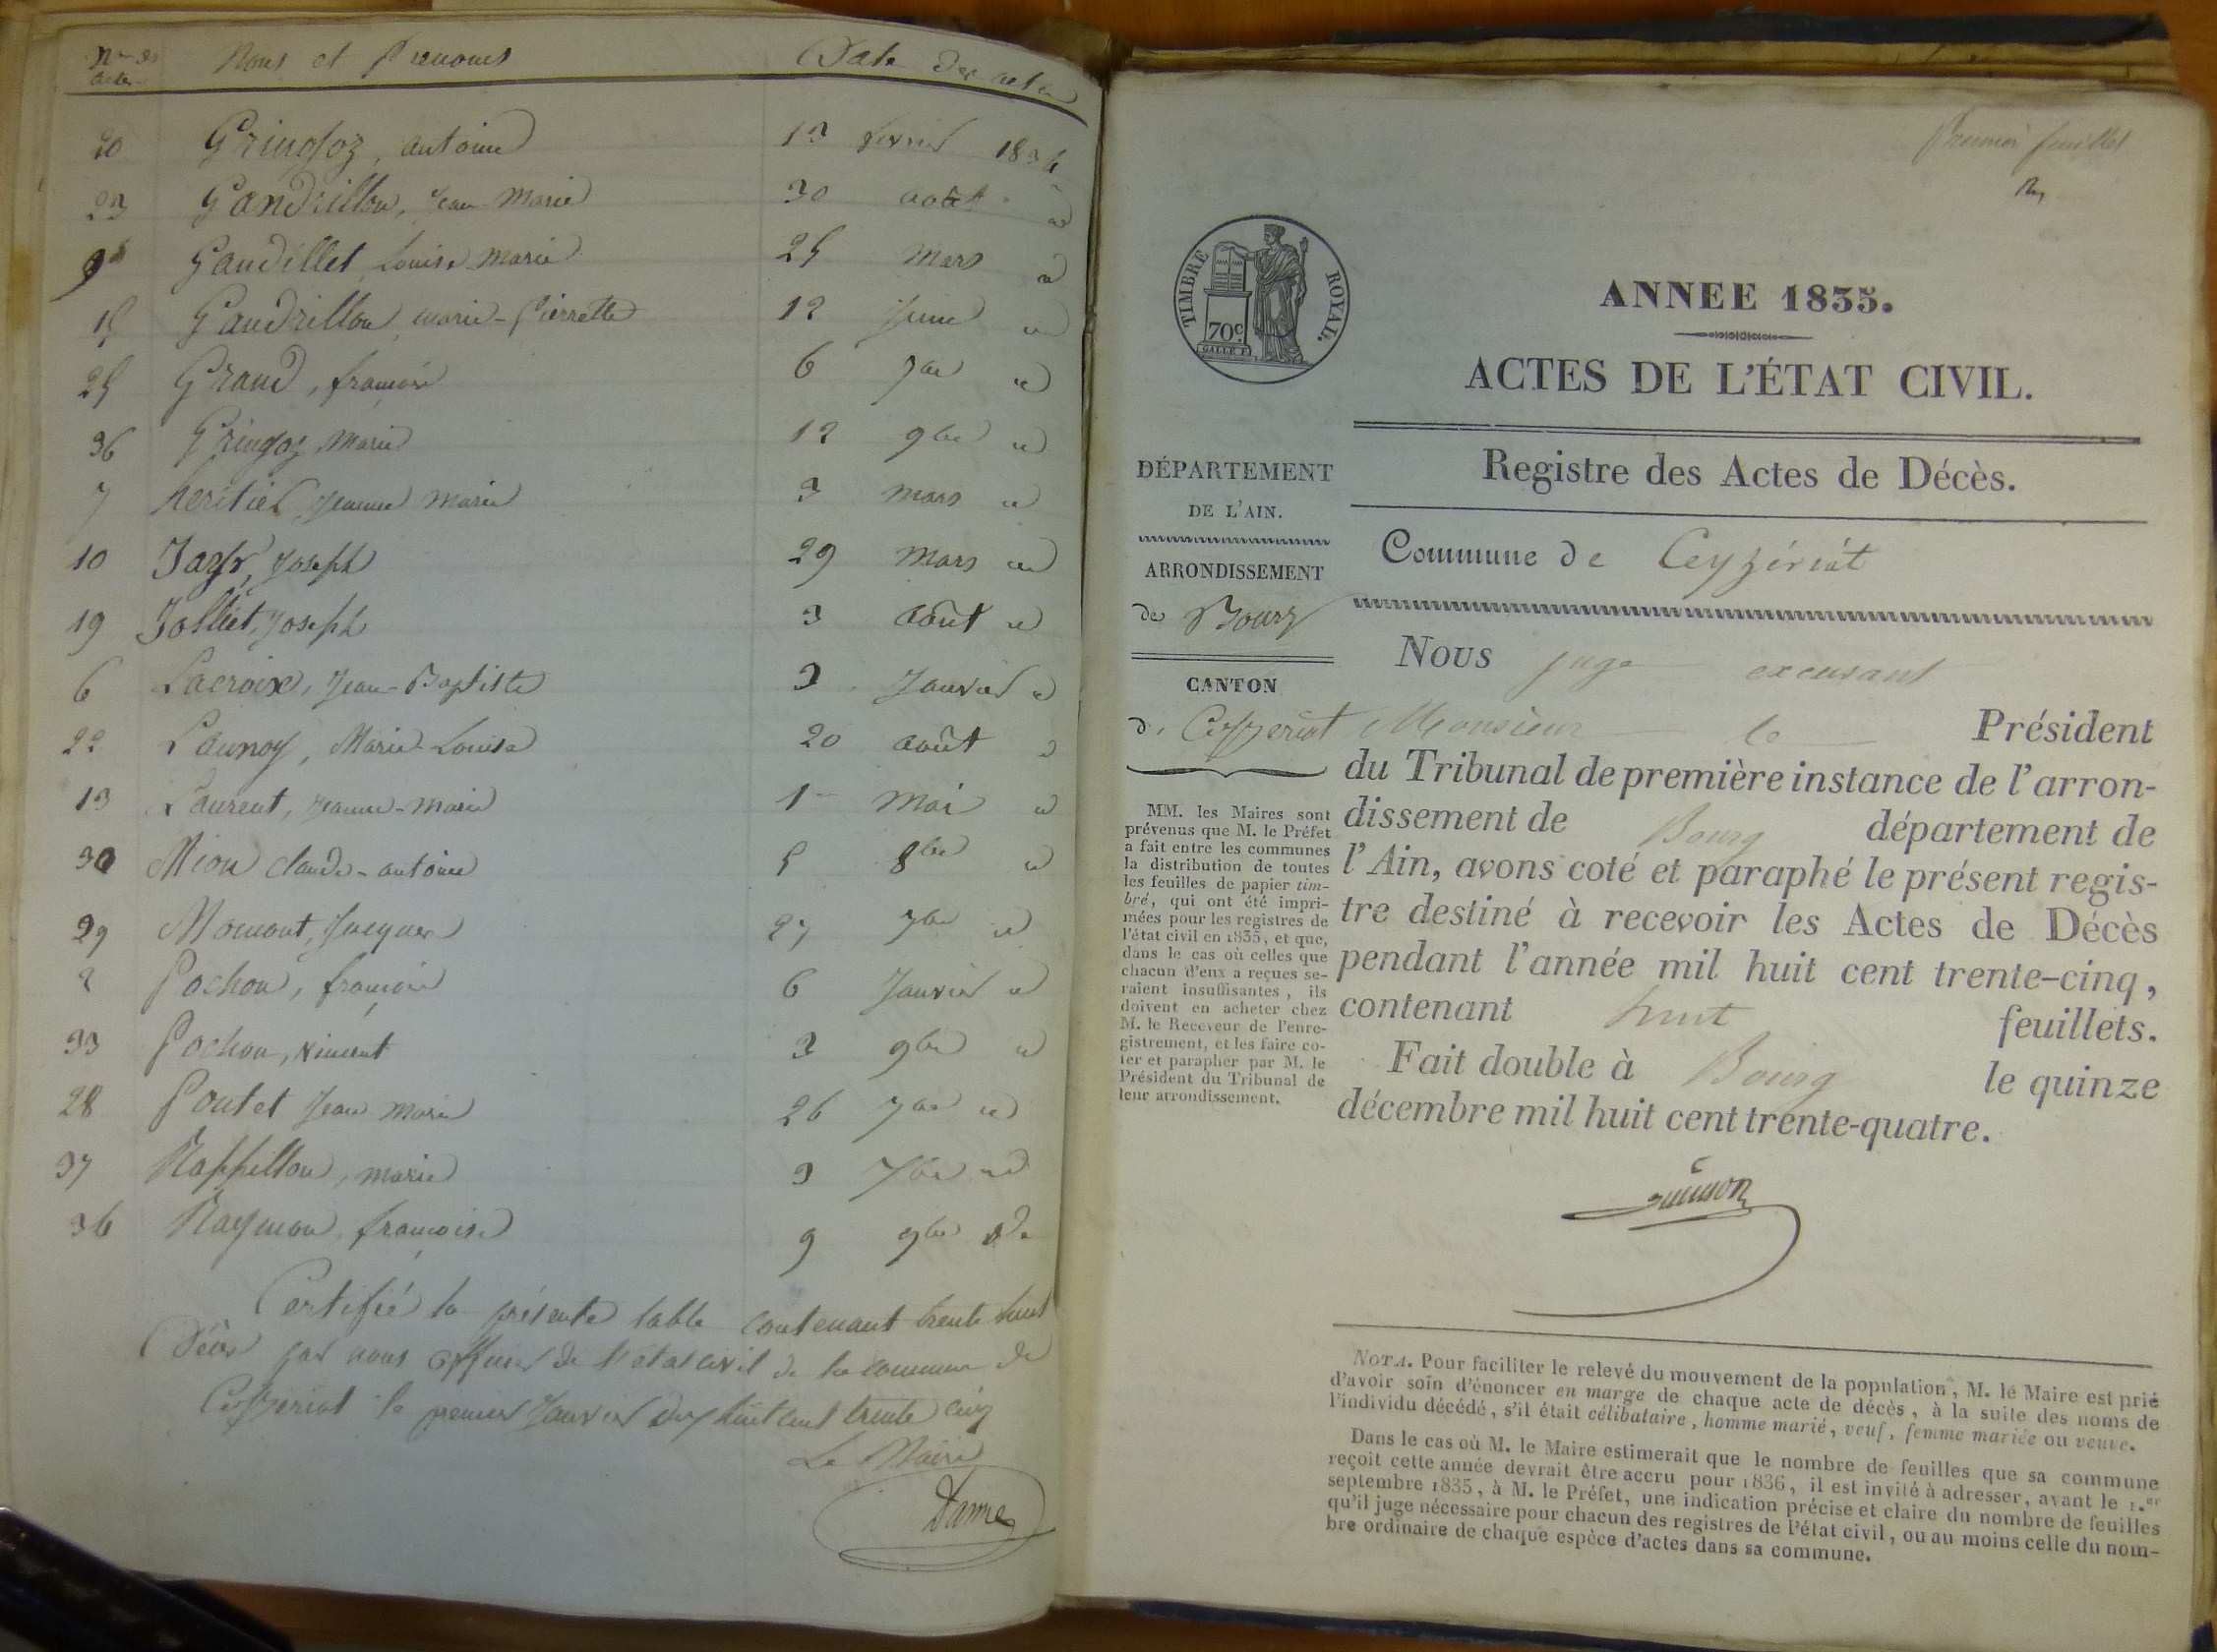 Nos des actes Noms et Prenoms Date des actes
20 Gringoz, antoine 13 fevrier 1834
23 Gandrillon, Jean Marie 30 août id
9 Gaudillet Louise Marie 25 Mars id
15 Gandrillon marie-Pierrette 12 Juin id
25 Grand, francois 6 7bre id
36 Gringoz Marie 12 9bre id
7 heritier, Jeanne Marie 3 mars id
10 Jayr, Joseph 29 Mars id
19 Jolliet, Joseph 3 août id
6 Lacroix, Jean-Baptiste 3 Janvier id
22 Launoy, Marie-Louise 20 août id
13 Laurent, Jeanne-Marie 1er Mai id
30 Mion Claude-antoine 5 8bre id
29 Momont, Jacques 27 7bre id
2 Pochon, francois 6 Janvier id
33 Pochon, vincent 3 9bre id
28 Poutet Jean Marie 26 7bre id
37 Rappillon, marie 3 7bre id
36 Raymon francoise 9 9bre
Certifié la présente table contenant trente huit
Décès par nous officier de l'état civil de la commune de
Ceyzeriat le premier Janvier dix huit cent trente cinq
Le Maire
Premier feuillet
TIMBRE ROYAL.
70c
GALLE F.
ANNEE 1835.
ACTES DE L'ÉTAT CIVIL.
Registre des Actes de Décès.
DÉPARTEMENT
DE L'AIN.
ARRONDISSEMENT
de Bourg
CANTON
de Ceyzeriat
MM. les Maires sont
prévenus que M. le Préfet
a fait entre les communes
la distribution de toutes
les feuilles de papier tim-
bré, qui ont été impri-
mées pour les registres de
l'état civil en 1835, et que,
dans le cas où celles que
chacun d'eux a reçues se-
raient insuffisantes, ils
doivent en acheter chez
M. le Receveur de l'enre-
gistrement, et les faire co-
ter et parapher par M. le
Président du Tribunal de
leur arrondissement.
Commune de Ceyzériát
Nous juge excusant
Monsieur le Président
du Tribunal de première instance de l'arron-
dissement de Bourg département de
l'Ain, avons coté et paraphé le présent regis-
tre destiné à recevoir les Actes de Décès
pendant l'année mil huit cent trente-cinq,
contenant huit feuillets.
Fait double à Bourg le quinze
décembre mil huit cent trente-quatre.
NOTA. Pour faciliter le relevé du mouvement de la population, M. le Maire est prié
d'avoir soin d'énoncer en marge de chaque acte de décès, à la suite des noms de
l'individu décédé, s'il était célibataire, homme marié, veuf, femme mariée ou veuve.
Dans le cas où M. le Maire estimerait que le nombre de feuilles que sa commune
reçoit cette année devrait être accru pour 1836, il est invité à adresser, avant le 1.er
septembre 1835, à M. le Préfet, une indication précise et claire du nombre de feuilles
qu'il juge nécessaire pour chacun des registres de l'état civil, ou au moins celle du nom-
bre ordinaire de chaque espèce d'actes dans sa commune.